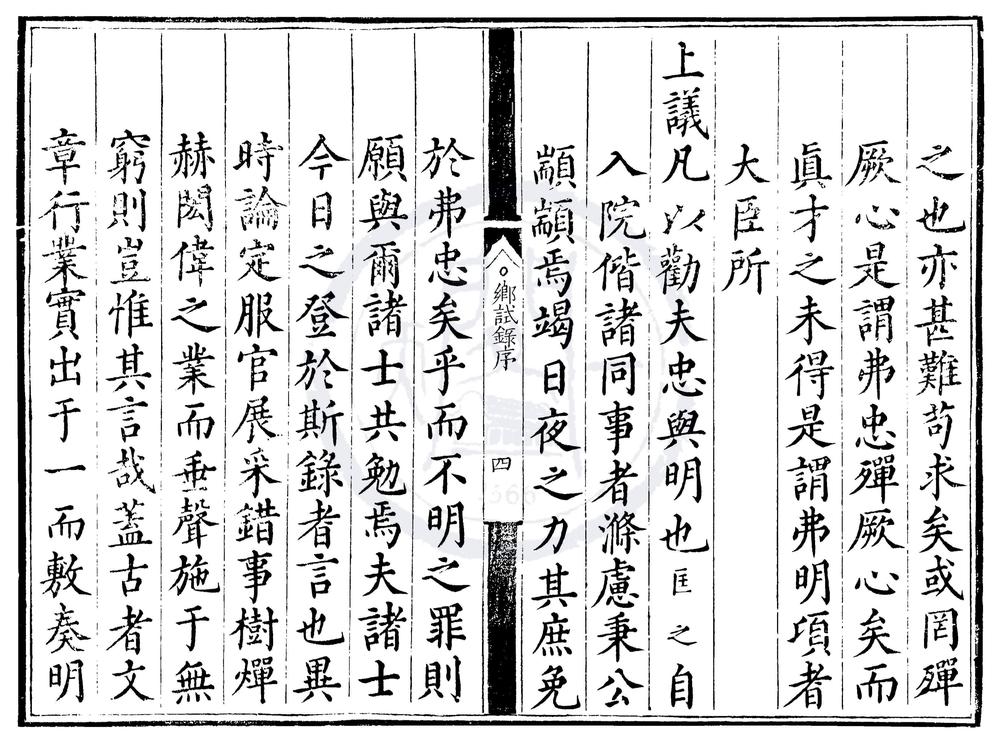 之也亦甚難苟求矣或罔殫
厥心是謂弗忠殫厥心矣而
眞才之未得是謂弗明項者
大臣所
上議凡以勸夫忠與明也匡之自
入院偕諸同事者滌慮秉公
顓顓焉竭日夜之力其庶免
鄉試錄序
四
於弗忠矣乎而不明之罪則
願與爾諸士共勉焉夫諸士
今日之登於斯錄者言也異
時論定服官展采錯事樹燀
赫閎偉之業而垂聲施于無
窮則豈惟其言哉蓋古者文
章行業實出于一而敷奏明